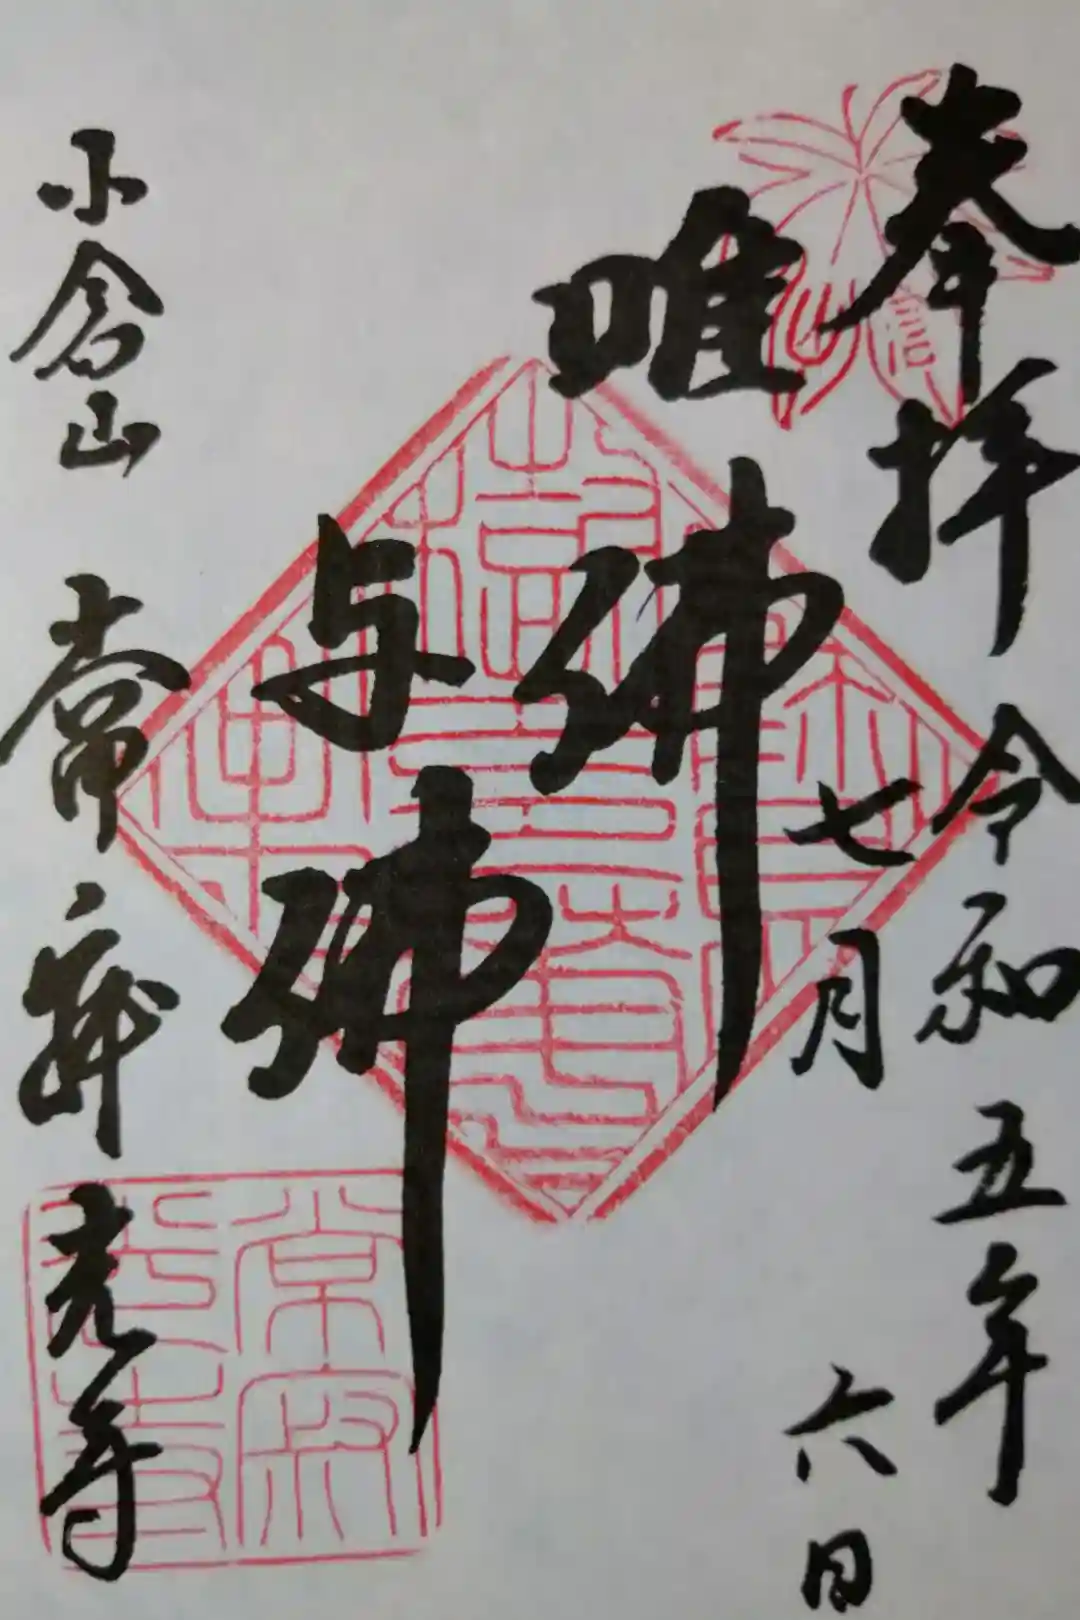 奉拝 令和五年
七月六日
唯佛
与佛
小倉山 常寂光寺
常寂
光寺